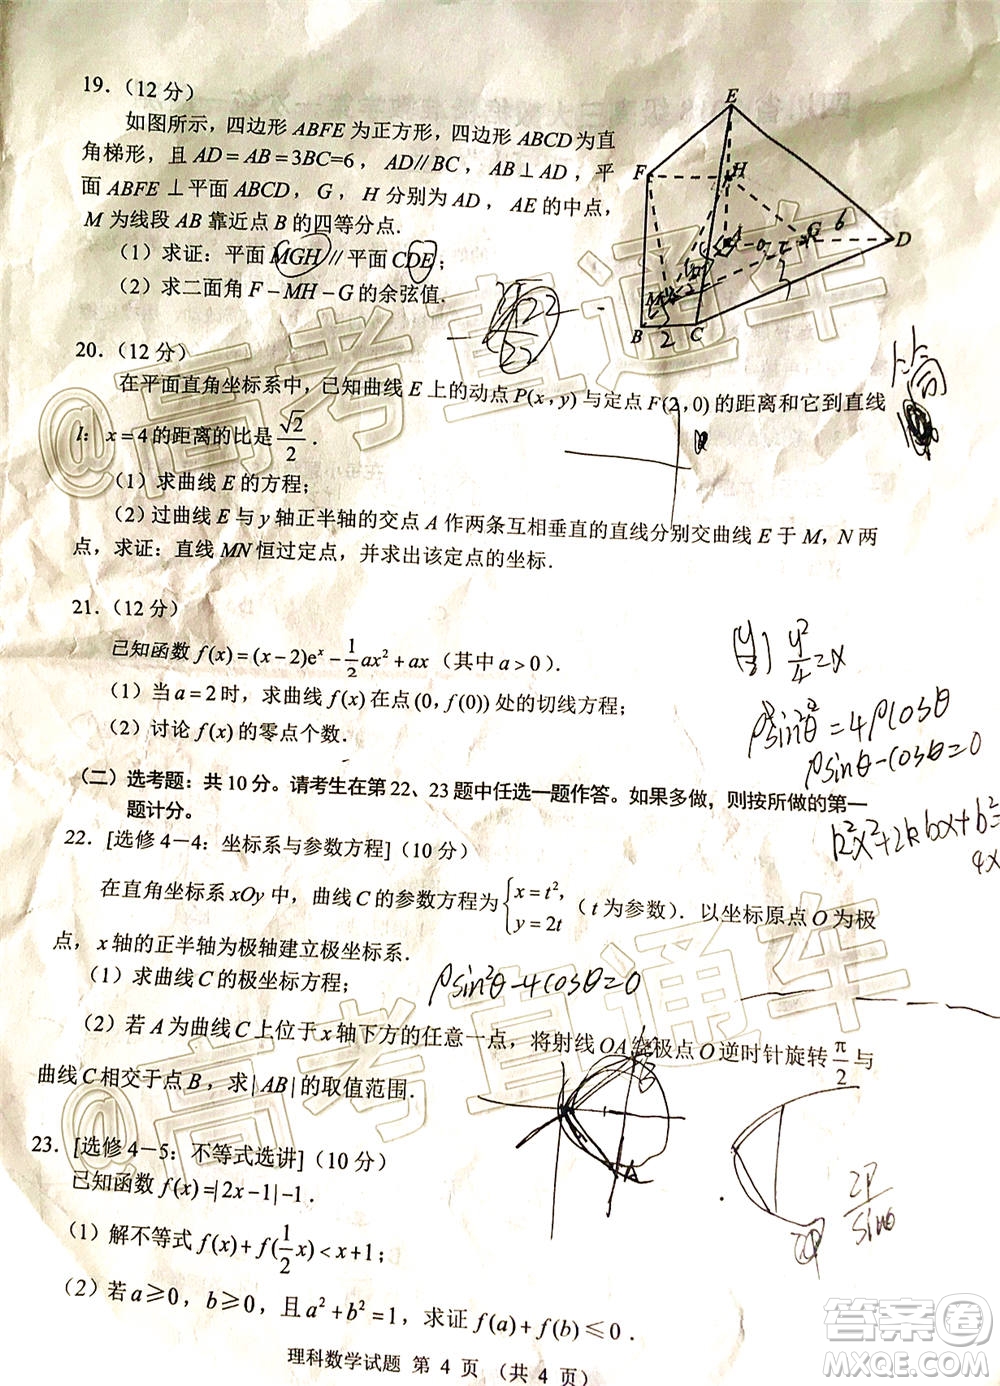 19.（12 分）
如图所示，四边形 ABFE 为正方形，四边形 ABCD 为直
角梯形，且 AD = AB = 3BC=6，AD∥BC，AB⊥AD，平
面 ABFE⊥平面 ABCD，G，H 分别为 AD，AE 的中点，
M 为线段 AB 靠近点 B 的四等分点.
（1）求证：平面 MGH∥平面 CDE；
（2）求二面角 F－MH－G 的余弦值.
E
F
H
G
6
D
A
M
B
2
C
20.（12 分）
在平面直角坐标系中，已知曲线 E 上的动点 P(x，y) 与定点 F(2，0) 的距离和它到直线
l：x＝4 的距离的比是 √2/2.
（1）求曲线 E 的方程；
（2）过曲线 E 与 y 轴正半轴的交点 A 作两条互相垂直的直线分别交曲线 E 于 M，N 两
点，求证：直线 MN 恒过定点，并求出该定点的坐标.
21.（12 分）
已知函数 f(x)=(x－2)eˣ－1/2 ax²＋ax（其中 a＞0）.
（1）当 a＝2 时，求曲线 f(x) 在点 (0，f(0)) 处的切线方程；
（2）讨论 f(x) 的零点个数.
y²/4=x
ρ²sin²θ=4ρcosθ
ρsinθ-cosθ=0
（二）选考题：共 10 分。请考生在第 22、23 题中任选一题作答。如果多做，则按所做的第一
题计分。
k²x²+2kbx+b²=
4x
22.[选修 4－4：坐标系与参数方程]（10 分）
在直角坐标系 xOy 中，曲线 C 的参数方程为 { x＝t²，y＝2t（t 为参数）．以坐标原点 O 为极
点，x 轴的正半轴为极轴建立极坐标系.
（1）求曲线 C 的极坐标方程；
ρsin²θ-4cosθ=0
（2）若 A 为曲线 C 上位于 x 轴下方的任意一点，将射线 OA 绕极点 O 逆时针旋转 π/2 与
曲线 C 相交于点 B，求|AB|的取值范围.
A
2P/sinθ
23.[选修 4－5：不等式选讲]（10 分）
已知函数 f(x)=|2x－1|－1.
（1）解不等式 f(x)＋f(1/2 x)＜x＋1；
（2）若 a≥0，b≥0，且 a²＋b²＝1，求证 f(a)＋f(b)≤0.
理科数学试题 第 4 页 （共 4 页）
@高考直通车
@高考直通车
答案圈
MXQE.COM